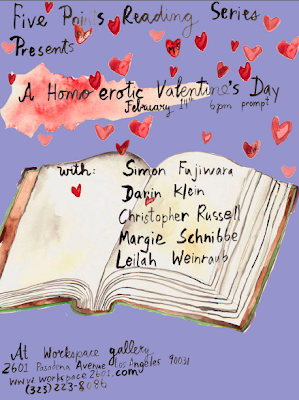 Five Points Reading Series
Presents
A Homo erotic Valentine's Day
February 14th 6pm prompt
with: Simon Fujiwara
Darin Klein
Christopher Russell
Margie Schnibbe
Leilah Weinraub
At Workspace gallery
2601 Pasadena Avenue Los Angeles 90031
www.workspace2601.com
(323)223-8086